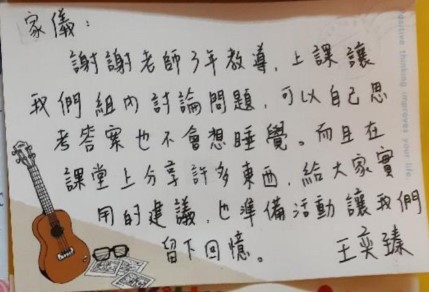 家儀:
謝謝老師3年教導,上課讓
我們組內討論問題,可以自己思
考答案也不會想睡覺。而且在
課堂上分享許多東西,給大家實
用的建議,也準備活動讓我們
留下回憶。
王奕臻
thinking improves your life.